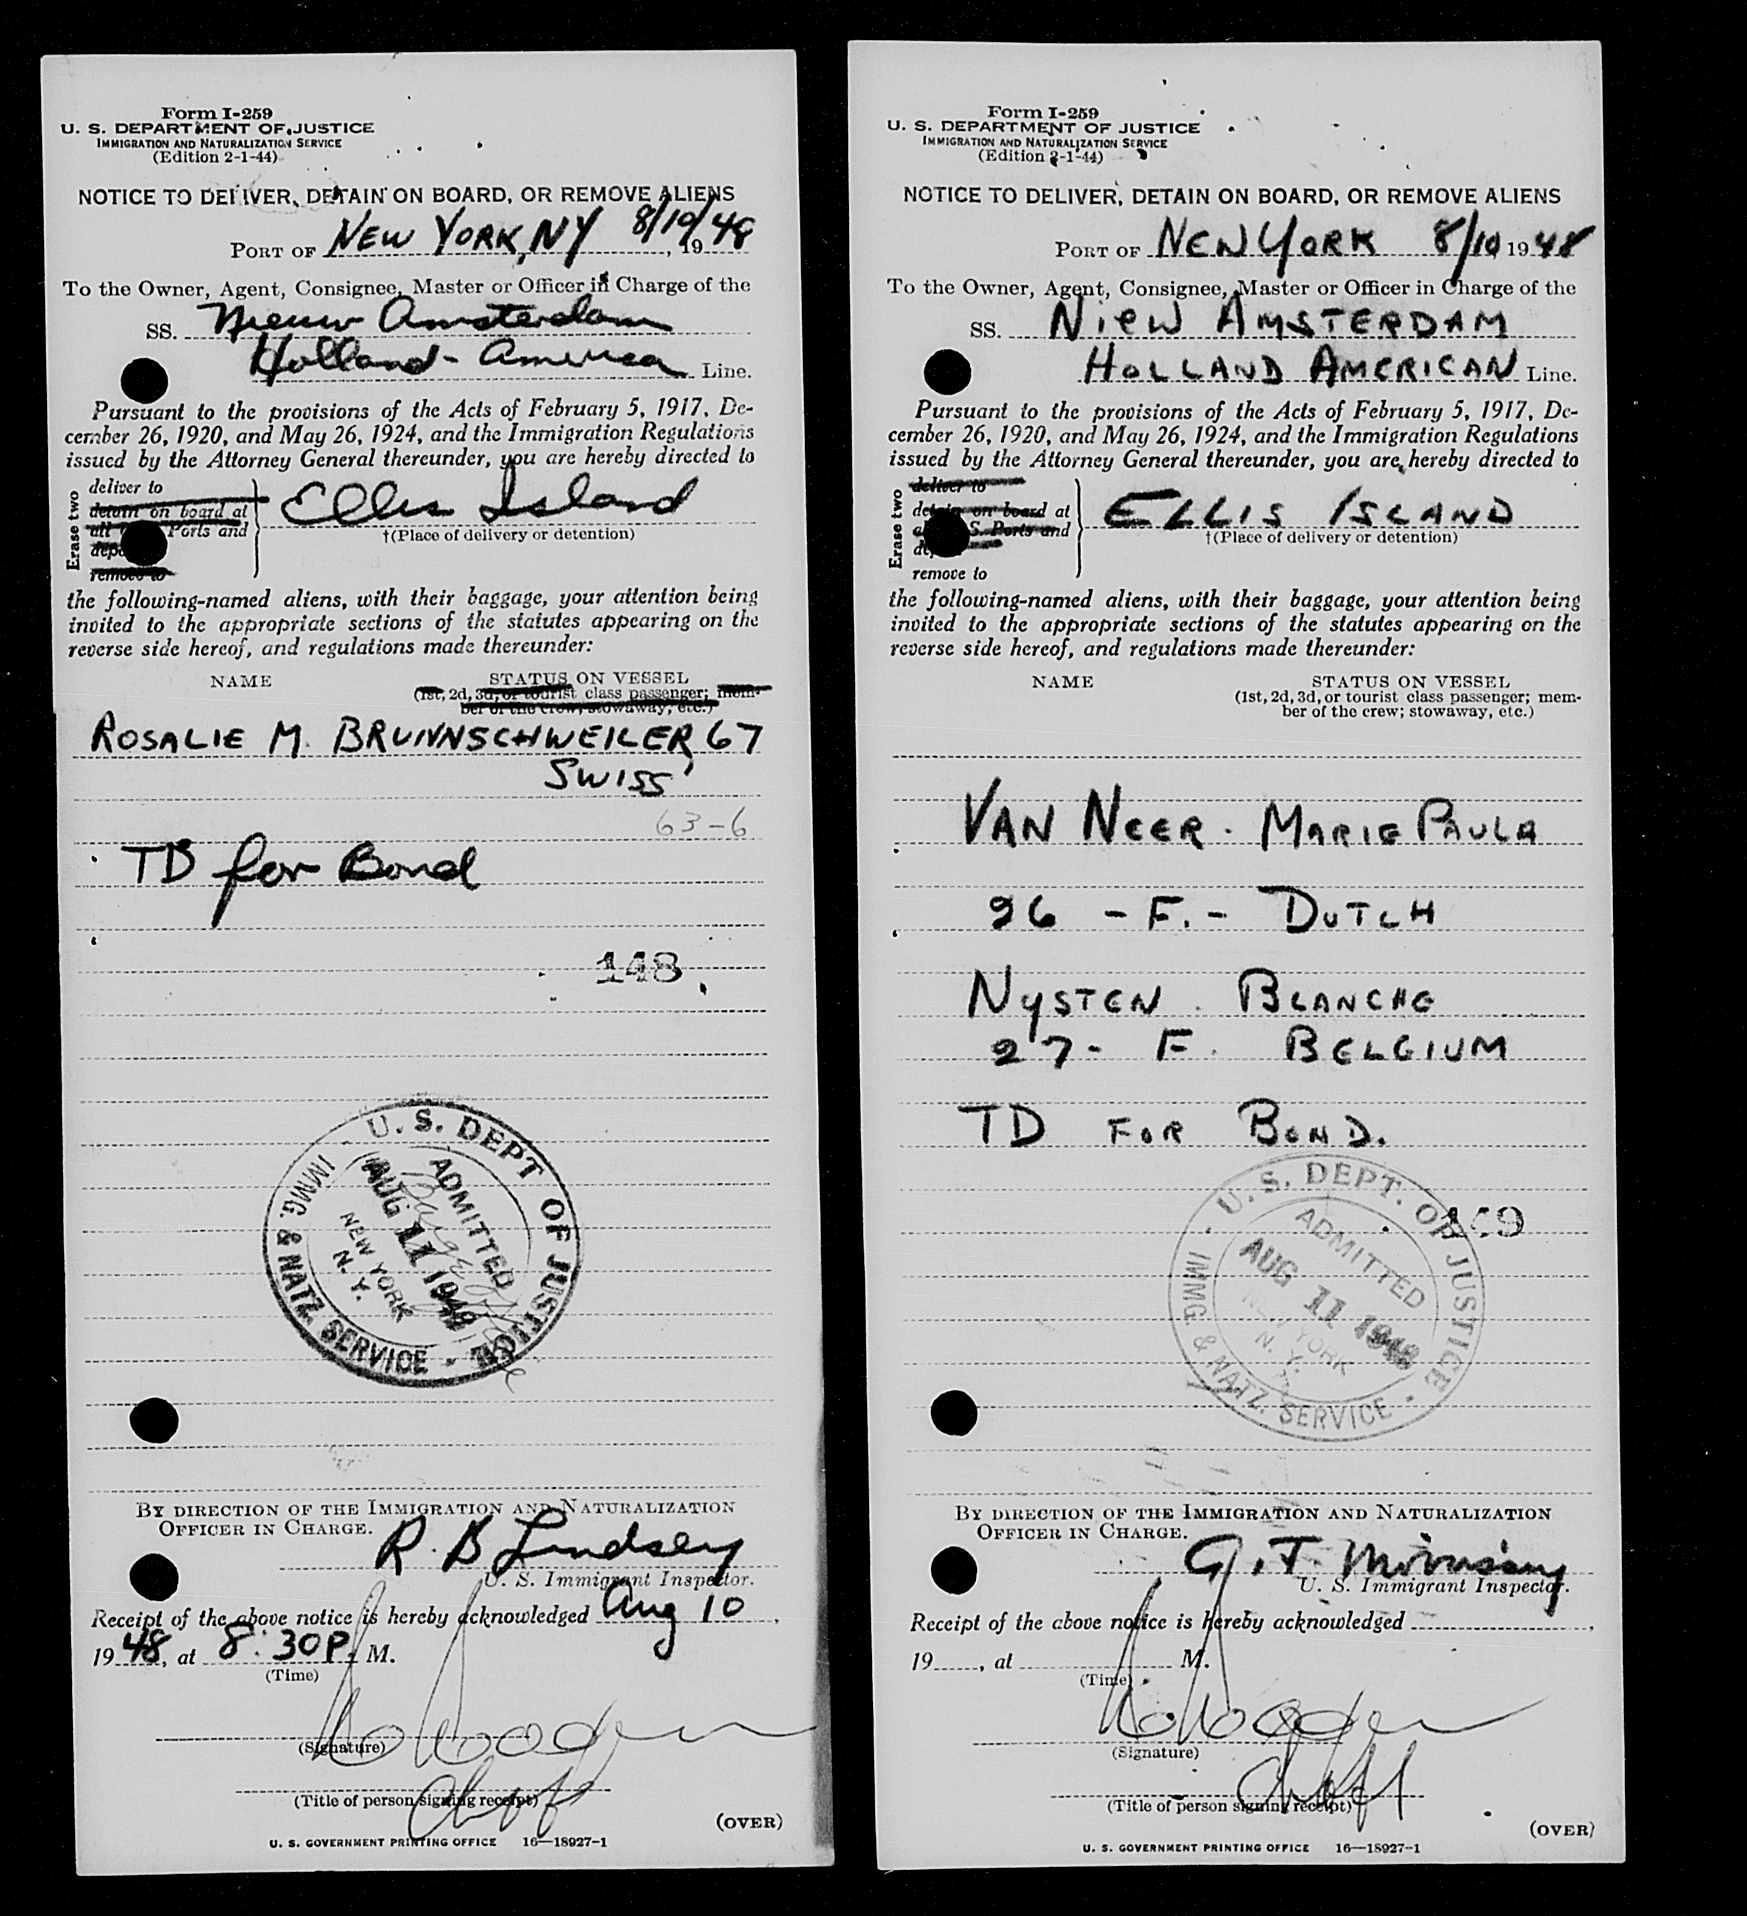 Form I-259
U. S. DEPARTMENT OF JUSTICE
IMMIGRATION AND NATURALIZATION SERVICE
(Edition 2-1-44)
NOTICE TO DELIVER, DETAIN ON BOARD, OR REMOVE ALIENS
PORT OF NEW YORK, NY 8/10/ 1948
To the Owner, Agent, Consignee, Master or Officer in Charge of the
SS. Nieuw Amsterdam
Holland-America Line.
Pursuant to the provisions of the Acts of February 5, 1917, De-
cember 26, 1920, and May 26, 1924, and the Immigration Regulations
issued by the Attorney General thereunder, you are hereby directed to
Erase two
deliver to
detain on board at
all Ports and
remove to
Ellis Island
†(Place of delivery or detention)
the following-named aliens, with their baggage, your attention being
invited to the appropriate sections of the statutes appearing on the
reverse side hereof, and regulations made thereunder:
NAME STATUS ON VESSEL
(1st, 2d, 3d, or tourist class passenger; mem-
ber of the crew; stowaway, etc.)
ROSALIE M. BRUNNSCHWEILER, 67
SWISS
63-6
TD for Bond
148
U. S. DEPT OF JUSTICE
IMMG. & NATZ. SERVICE
ADMITTED
AUG 11 1948
NEW YORK
N. Y.
BY DIRECTION OF THE IMMIGRATION AND NATURALIZATION
OFFICER IN CHARGE.
R. B Lindsey
U. S. Immigrant Inspector.
Receipt of the above notice is hereby acknowledged Aug 10,
1948, at 8:30 P. M.
(Time)
(Signature)
(Title of person signing receipt)
(OVER)
U. S. GOVERNMENT PRINTING OFFICE 16—18927-1
Form I-259
U. S. DEPARTMENT OF JUSTICE
IMMIGRATION AND NATURALIZATION SERVICE
(Edition 2-1-44)
NOTICE TO DELIVER, DETAIN ON BOARD, OR REMOVE ALIENS
PORT OF NEW YORK 8/10 1948
To the Owner, Agent, Consignee, Master or Officer in Charge of the
SS. NIEW AMSTERDAM
HOLLAND AMERICAN Line.
Pursuant to the provisions of the Acts of February 5, 1917, De-
cember 26, 1920, and May 26, 1924, and the Immigration Regulations
issued by the Attorney General thereunder, you are hereby directed to
Erase two
deliver to
detain on board at
S. Ports and
remove to
ELLIS ISLAND
†(Place of delivery or detention)
the following-named aliens, with their baggage, your attention being
invited to the appropriate sections of the statutes appearing on the
reverse side hereof, and regulations made thereunder:
NAME STATUS ON VESSEL
(1st, 2d, 3d, or tourist class passenger; mem-
ber of the crew; stowaway, etc.)
VAN NEER. MARIE PAULA
26 - F. - DUTCH
NYSTEN. BLANCHE
27- F. BELGIUM
TD FOR BOND.
149
U. S. DEPT. OF JUSTICE
IMMG. & NATZ. SERVICE
ADMITTED
AUG 11 1948
NEW YORK
N. Y.
BY DIRECTION OF THE IMMIGRATION AND NATURALIZATION
OFFICER IN CHARGE.
G. T. Morrissey
U. S. Immigrant Inspector.
Receipt of the above notice is hereby acknowledged ,
19 , at M.
(Time)
(Signature)
(Title of person signing receipt)
(OVER)
U. S. GOVERNMENT PRINTING OFFICE 16—18927-1